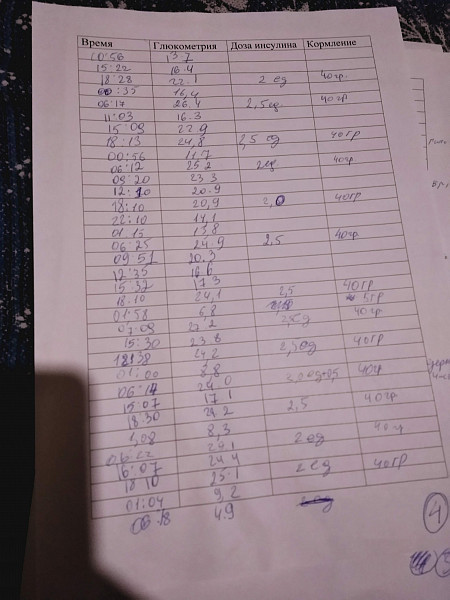 Время Глюкометрия Доза инсулина Кормление
10:56 13.7
15:22 16.4
18:28 22.1 2 ед 40гр.
00:35 16,4
06:17 26.4 2,5ед 40гр
11:03 16.3
15:09 22.9
18:13 24,8 2,5 ед 40гр
00:56 11,7
06:12 25.2 2ед 40гр
09:20 23.3
12:10 20.9
18:10 20,9 2,0 40гр
22:10 14,1
01.15 13,8
06:25 24.9 2,5 40гр
09 51 20.3
12:35 16.6
15:32 17.3
18.10 24,1 2,5 40гр
01:58 6,8 5гр
07:09 27.2 2ед 40гр
15:30 23.8
18:38 24.2 2,5ед 40гр
01:00 8.8
06:14 24.0 40гр
15:07 17.1
18:30 24.2 2,5 40гр
1,08 8,3
06:22 24.1 2 ед 40гр
16:07 24.4
18 10 25.1 2 ед 40гр
01:04 9,2
06:18 4.9 2 ед
4